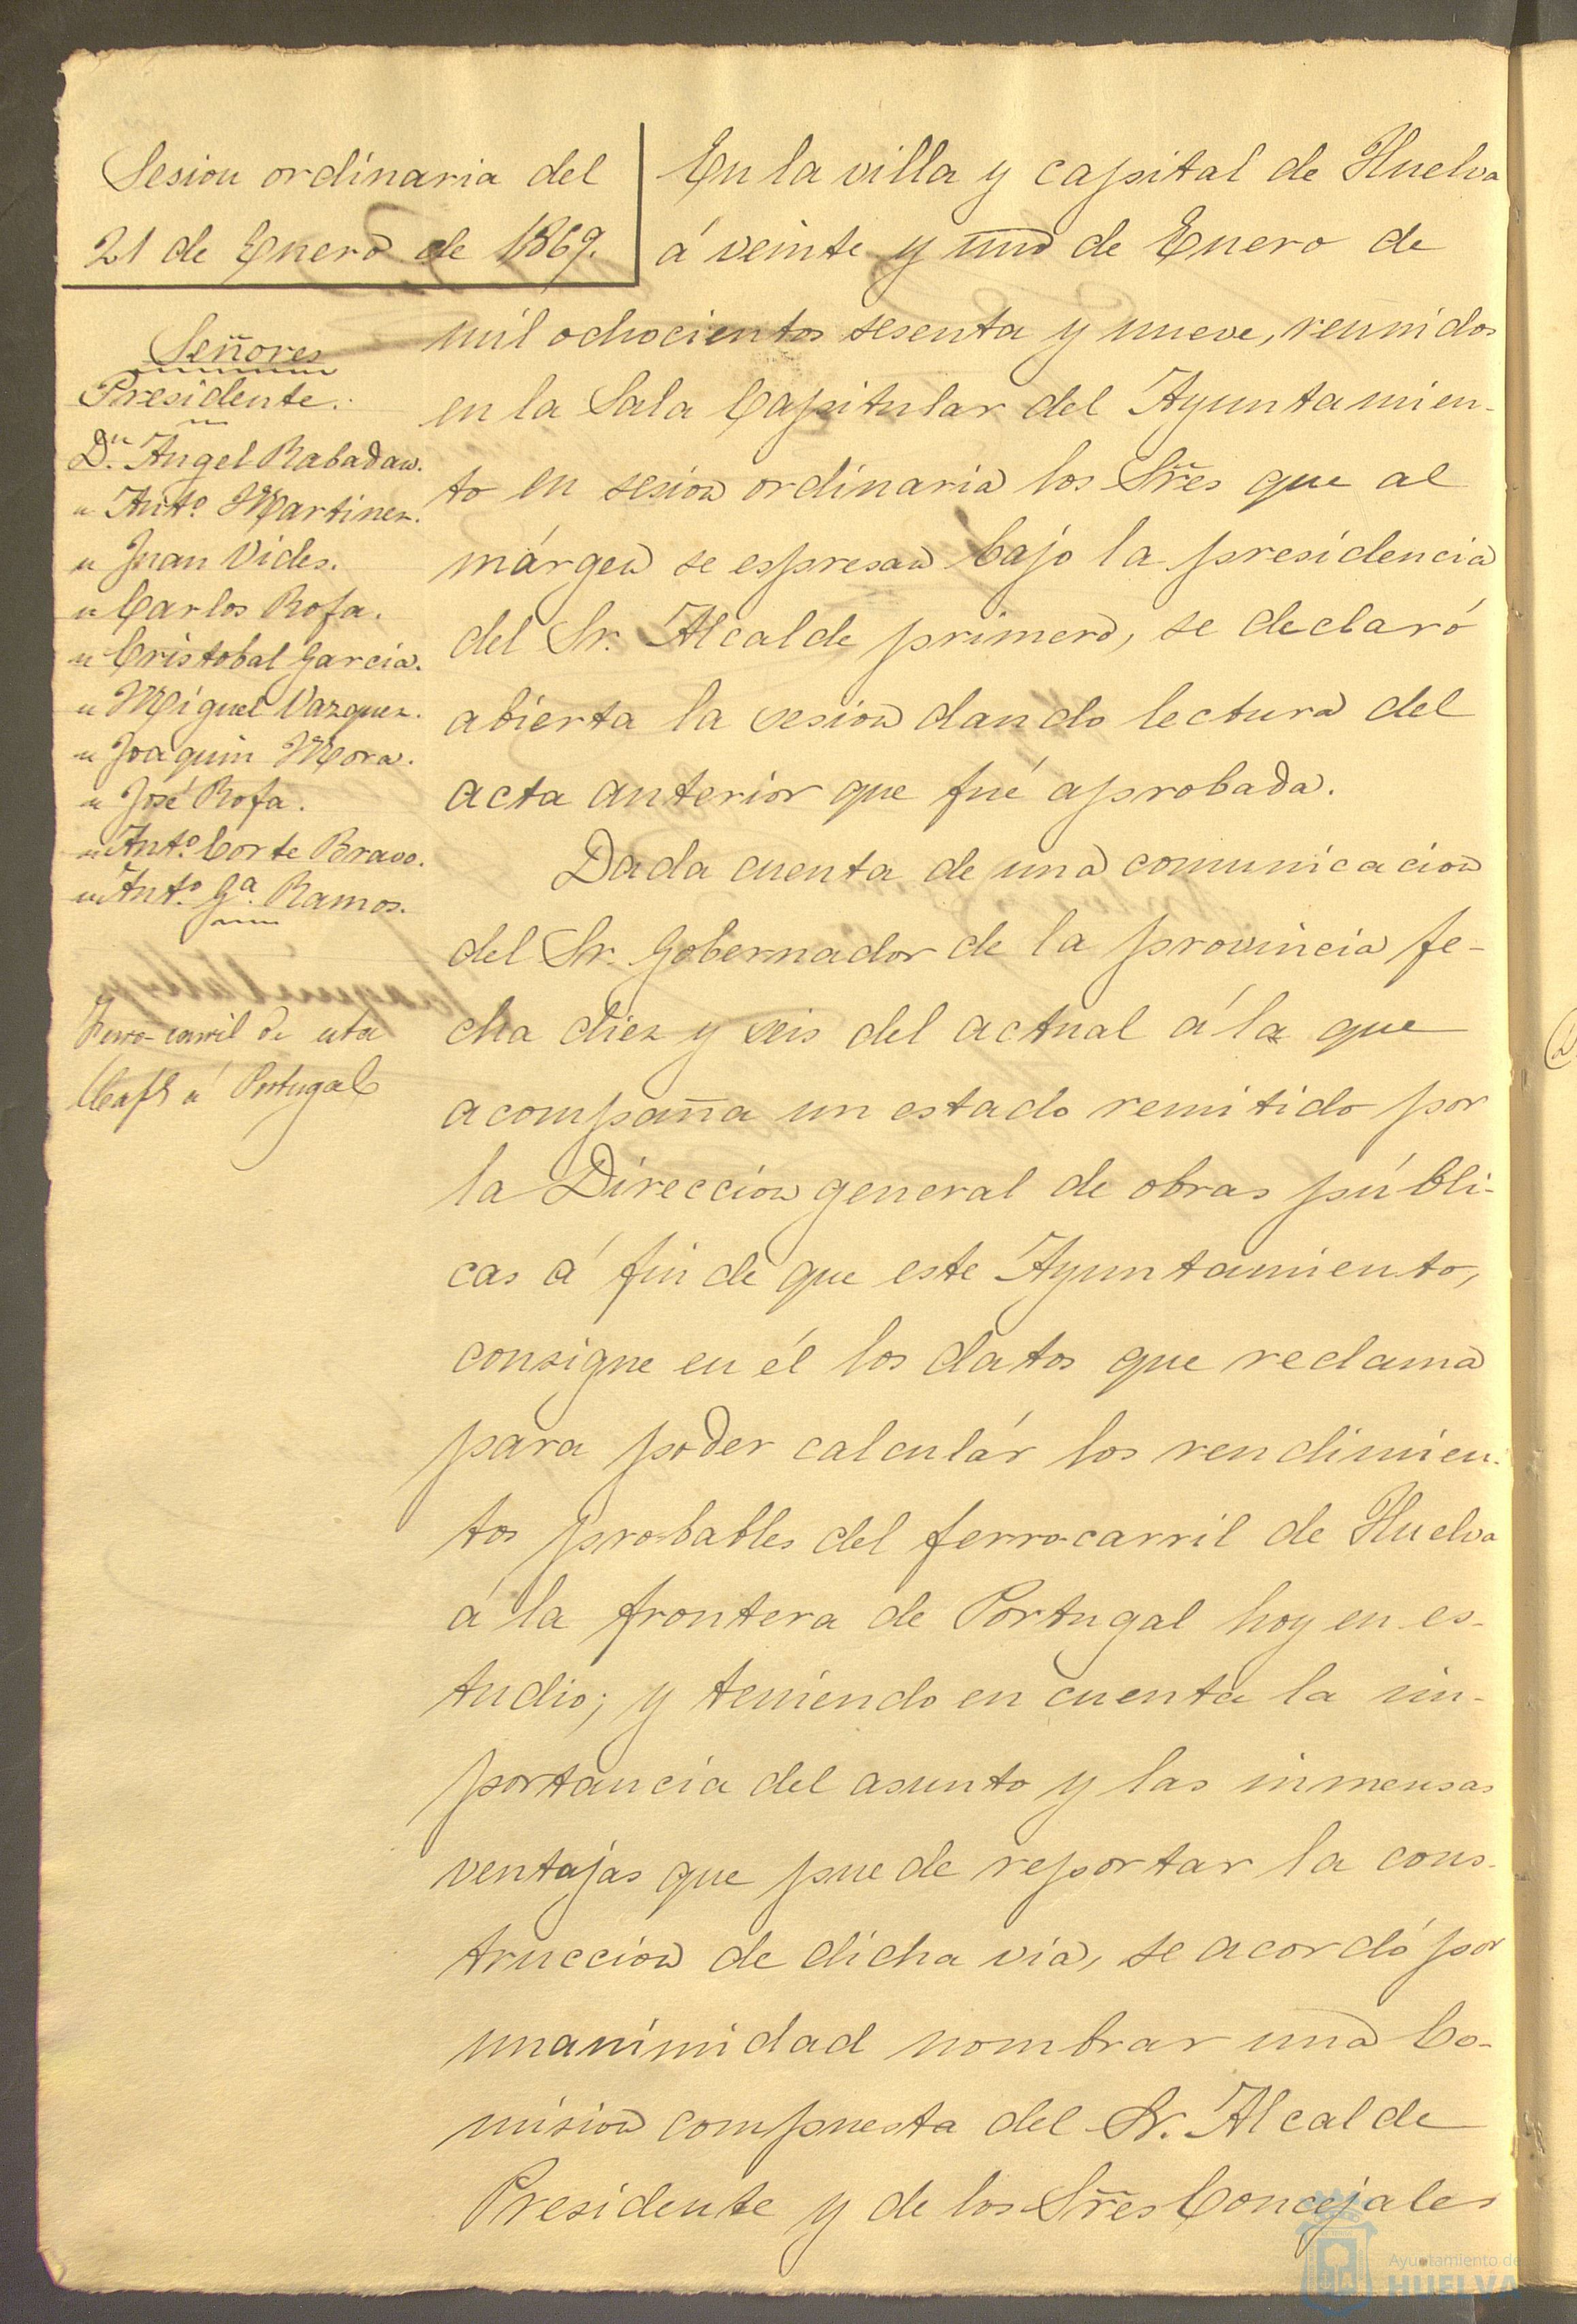 Sesion ordinaria del
21 de Enero de 1869.
Señores
Presidente.
Dn. Angel Rabadan.
" Anto. Martinez.
" Juan Vides.
" Carlos Rofa.
" Cristobal Garcia.
" Miguel Vazquez.
" Joaquin Mora.
" José Rofa.
" Anto. Corte Bravo.
" Anto. Ga. Ramos.
Ferro-carril de esta
Capl. á Portugal
En la villa y capital de Huelva
á veinte y uno de Enero de
mil ochocientos sesenta y nueve, reunidos
en la Sala Capitular del Ayuntamien-
to en sesion ordinaria los Sres que al
márgen se espresan bajo la presidencia
del Sr. Alcalde primero, se declaró
abierta la sesion dando lectura del
acta anterior que fué aprobada.
Dada cuenta de una comunicacion
del Sr. Gobernador de la provincia fe-
cha diez y seis del actual á la que
acompaña un estado remitido por
la Direccion general de obras públi-
cas á fin de que este Ayuntamiento,
consigne en él los datos que reclama
para poder calculár los rendimien-
tos probables del ferro-carril de Huelva
á la frontera de Portugal hoy en es-
tudio; y teniendo en cuenta la im-
portancia del asunto y las inmensas
ventajas que puede reportar la cons-
truccion de dicha via, se acordó por
unanimidad nombrar una Co-
mision compuesta del Sr. Alcalde
Presidente y de los Sres Concejales
Ayuntamiento de
HUELVA